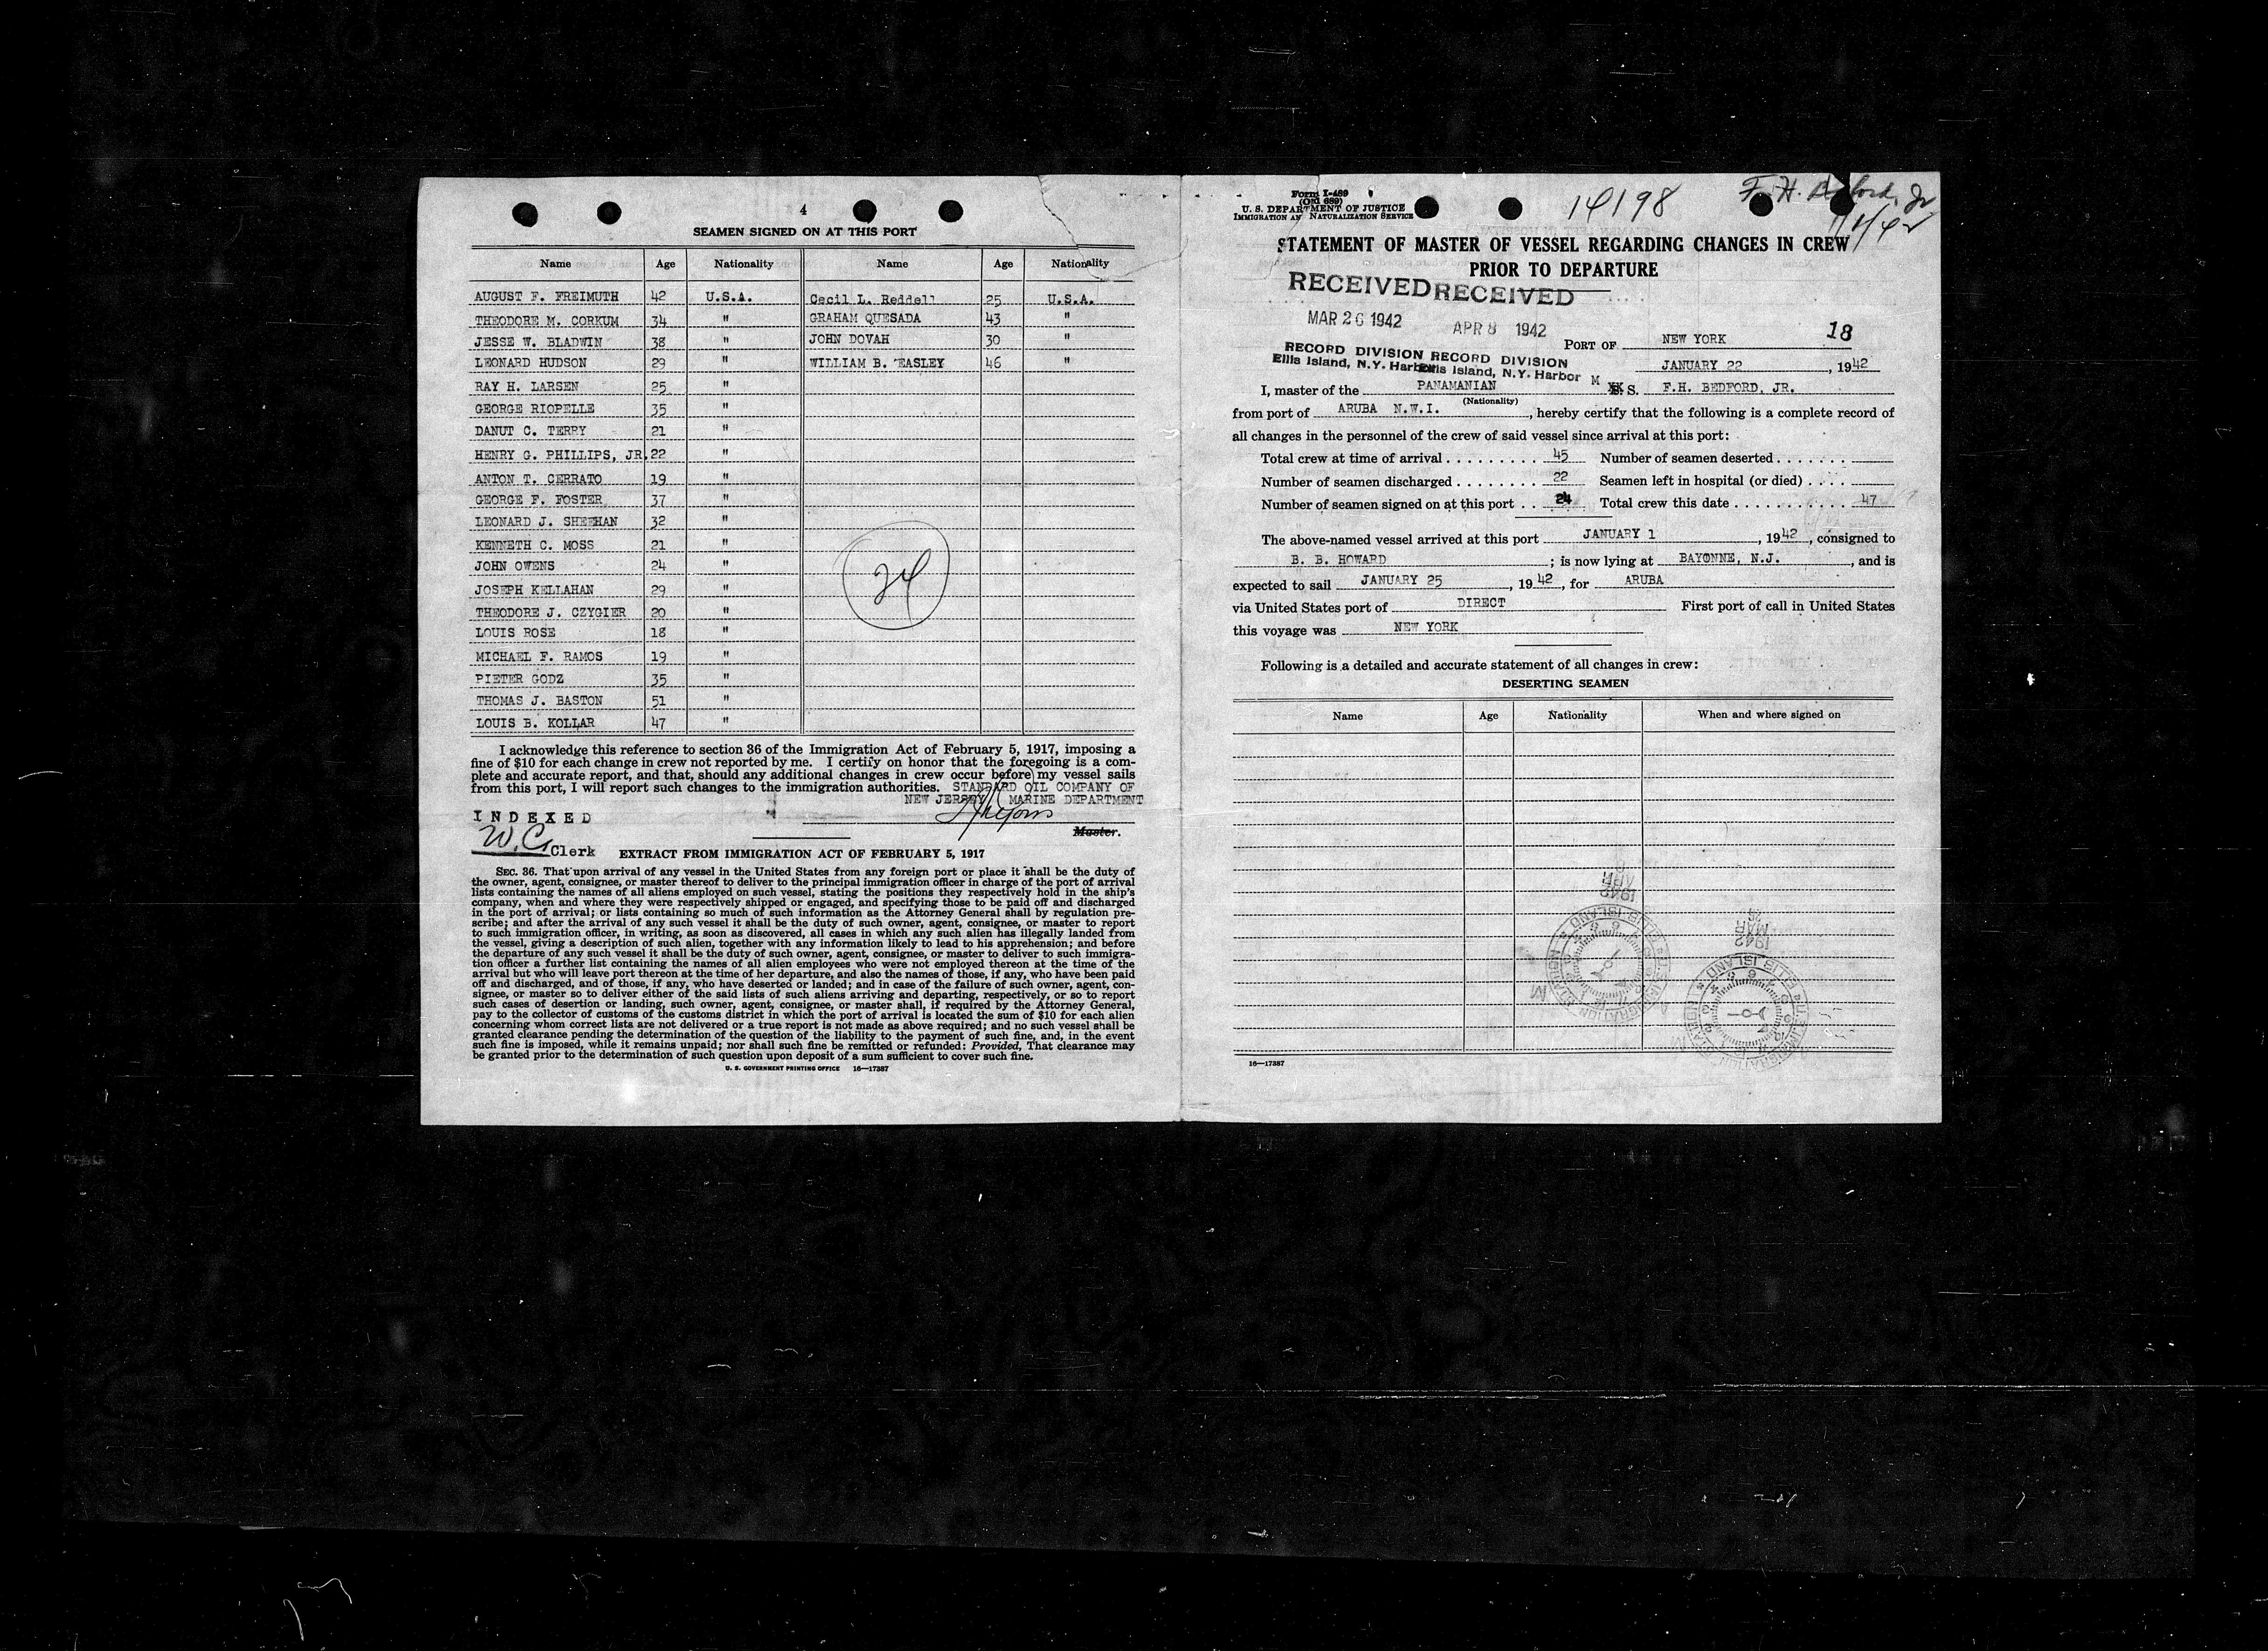 4
SEAMEN SIGNED ON AT THIS PORT
Name Age Nationality Name Age Nationality
AUGUST F. FREIMUTH 42 U.S.A. Cecil L. Reddell 25 U.S.A.
THEODORE M. CORKUM 34 " GRAHAM QUESADA 43 "
JESSE W. BLADWIN 38 " JOHN DOVAH 30 "
LEONARD HUDSON 29 " WILLIAM B. EASLEY 46 "
RAY H. LARSEN 25 "
GEORGE RIOPELLE 35 "
DANUT C. TERRY 21 "
HENRY G. PHILLIPS, JR. 22 "
ANTON T. CERRATO 19 "
GEORGE F. FOSTER 37 "
LEONARD J. SHEEHAN 32 "
KENNETH C. MOSS 21 "
JOHN OWENS 24 "
24
JOSEPH KELLAHAN 29 "
THEODORE J. CZYGIER 20 "
LOUIS ROSE 18 "
MICHAEL F. RAMOS 19 "
PIETER GODZ 35 "
THOMAS J. BASTON 51 "
LOUIS B. KOLLAR 47 "
I acknowledge this reference to section 36 of the Immigration Act of February 5, 1917, imposing a
fine of $10 for each change in crew not reported by me. I certify on honor that the foregoing is a com-
plete and accurate report, and that, should any additional changes in crew occur before my vessel sails
from this port, I will report such changes to the immigration authorities. STANDARD OIL COMPANY OF
NEW JERSEY MARINE DEPARTMENT
INDEXED
Master.
W.C. Clerk
EXTRACT FROM IMMIGRATION ACT OF FEBRUARY 5, 1917
SEC. 36. That upon arrival of any vessel in the United States from any foreign port or place it shall be the duty of
the owner, agent, consignee, or master thereof to deliver to the principal immigration officer in charge of the port of arrival
lists containing the names of all aliens employed on such vessel, stating the positions they respectively hold in the ship's
company, when and where they were respectively shipped or engaged, and specifying those to be paid off and discharged
in the port of arrival; or lists containing so much of such information as the Attorney General shall by regulation pre-
scribe; and after the arrival of any such vessel it shall be the duty of such owner, agent, consignee, or master to report
to such immigration officer, in writing, as soon as discovered, all cases in which any such alien has illegally landed from
the vessel, giving a description of such alien, together with any information likely to lead to his apprehension; and before
the departure of any such vessel it shall be the duty of such owner, agent, consignee, or master to deliver to such immigra-
tion officer a further list containing the names of all alien employees who were not employed thereon at the time of the
arrival but who will leave port thereon at the time of her departure, and also the names of those, if any, who have been paid
off and discharged, and of those, if any, who have deserted or landed; and in case of the failure of such owner, agent, con-
signee, or master so to deliver either of the said lists of such aliens arriving and departing, respectively, or so to report
such cases of desertion or landing, such owner, agent, consignee, or master shall, if required by the Attorney General,
pay to the collector of customs of the customs district in which the port of arrival is located the sum of $10 for each alien
concerning whom correct lists are not delivered or a true report is not made as above required; and no such vessel shall be
granted clearance pending the determination of the question of the liability to the payment of such fine, and, in the event
such fine is imposed, while it remains unpaid; nor shall such fine be remitted or refunded: Provided, That clearance may
be granted prior to the determination of such question upon deposit of a sum sufficient to cover such fine.
U. S. GOVERNMENT PRINTING OFFICE 16—17387
Form I-489
(Old 689)
U. S. DEPARTMENT OF JUSTICE
IMMIGRATION AN NATURALIZATION SERVICE
14198
F. H. Bedford, Jr
1/1/42
STATEMENT OF MASTER OF VESSEL REGARDING CHANGES IN CREW
PRIOR TO DEPARTURE
RECEIVED RECEIVED
MAR 26 1942 APR 8 1942
PORT OF NEW YORK 18
RECORD DIVISION RECORD DIVISION
Ellis Island, N.Y. Harb Ellis Island, N.Y. Harbor
JANUARY 22, 1942
I, master of the PANAMANIAN M S. F.H. BEDFORD, JR.
(Nationality)
from port of ARUBA N.W.I., hereby certify that the following is a complete record of
all changes in the personnel of the crew of said vessel since arrival at this port:
Total crew at time of arrival 45 Number of seamen deserted
Number of seamen discharged 22 Seamen left in hospital (or died)
Number of seamen signed on at this port 24 Total crew this date 47
The above-named vessel arrived at this port JANUARY 1, 1942, consigned to
B. B. HOWARD; is now lying at BAYONNE, N.J., and is
expected to sail JANUARY 25, 1942, for ARUBA
via United States port of DIRECT First port of call in United States
this voyage was NEW YORK
Following is a detailed and accurate statement of all changes in crew:
DESERTING SEAMEN
Name Age Nationality When and where signed on
16—17387